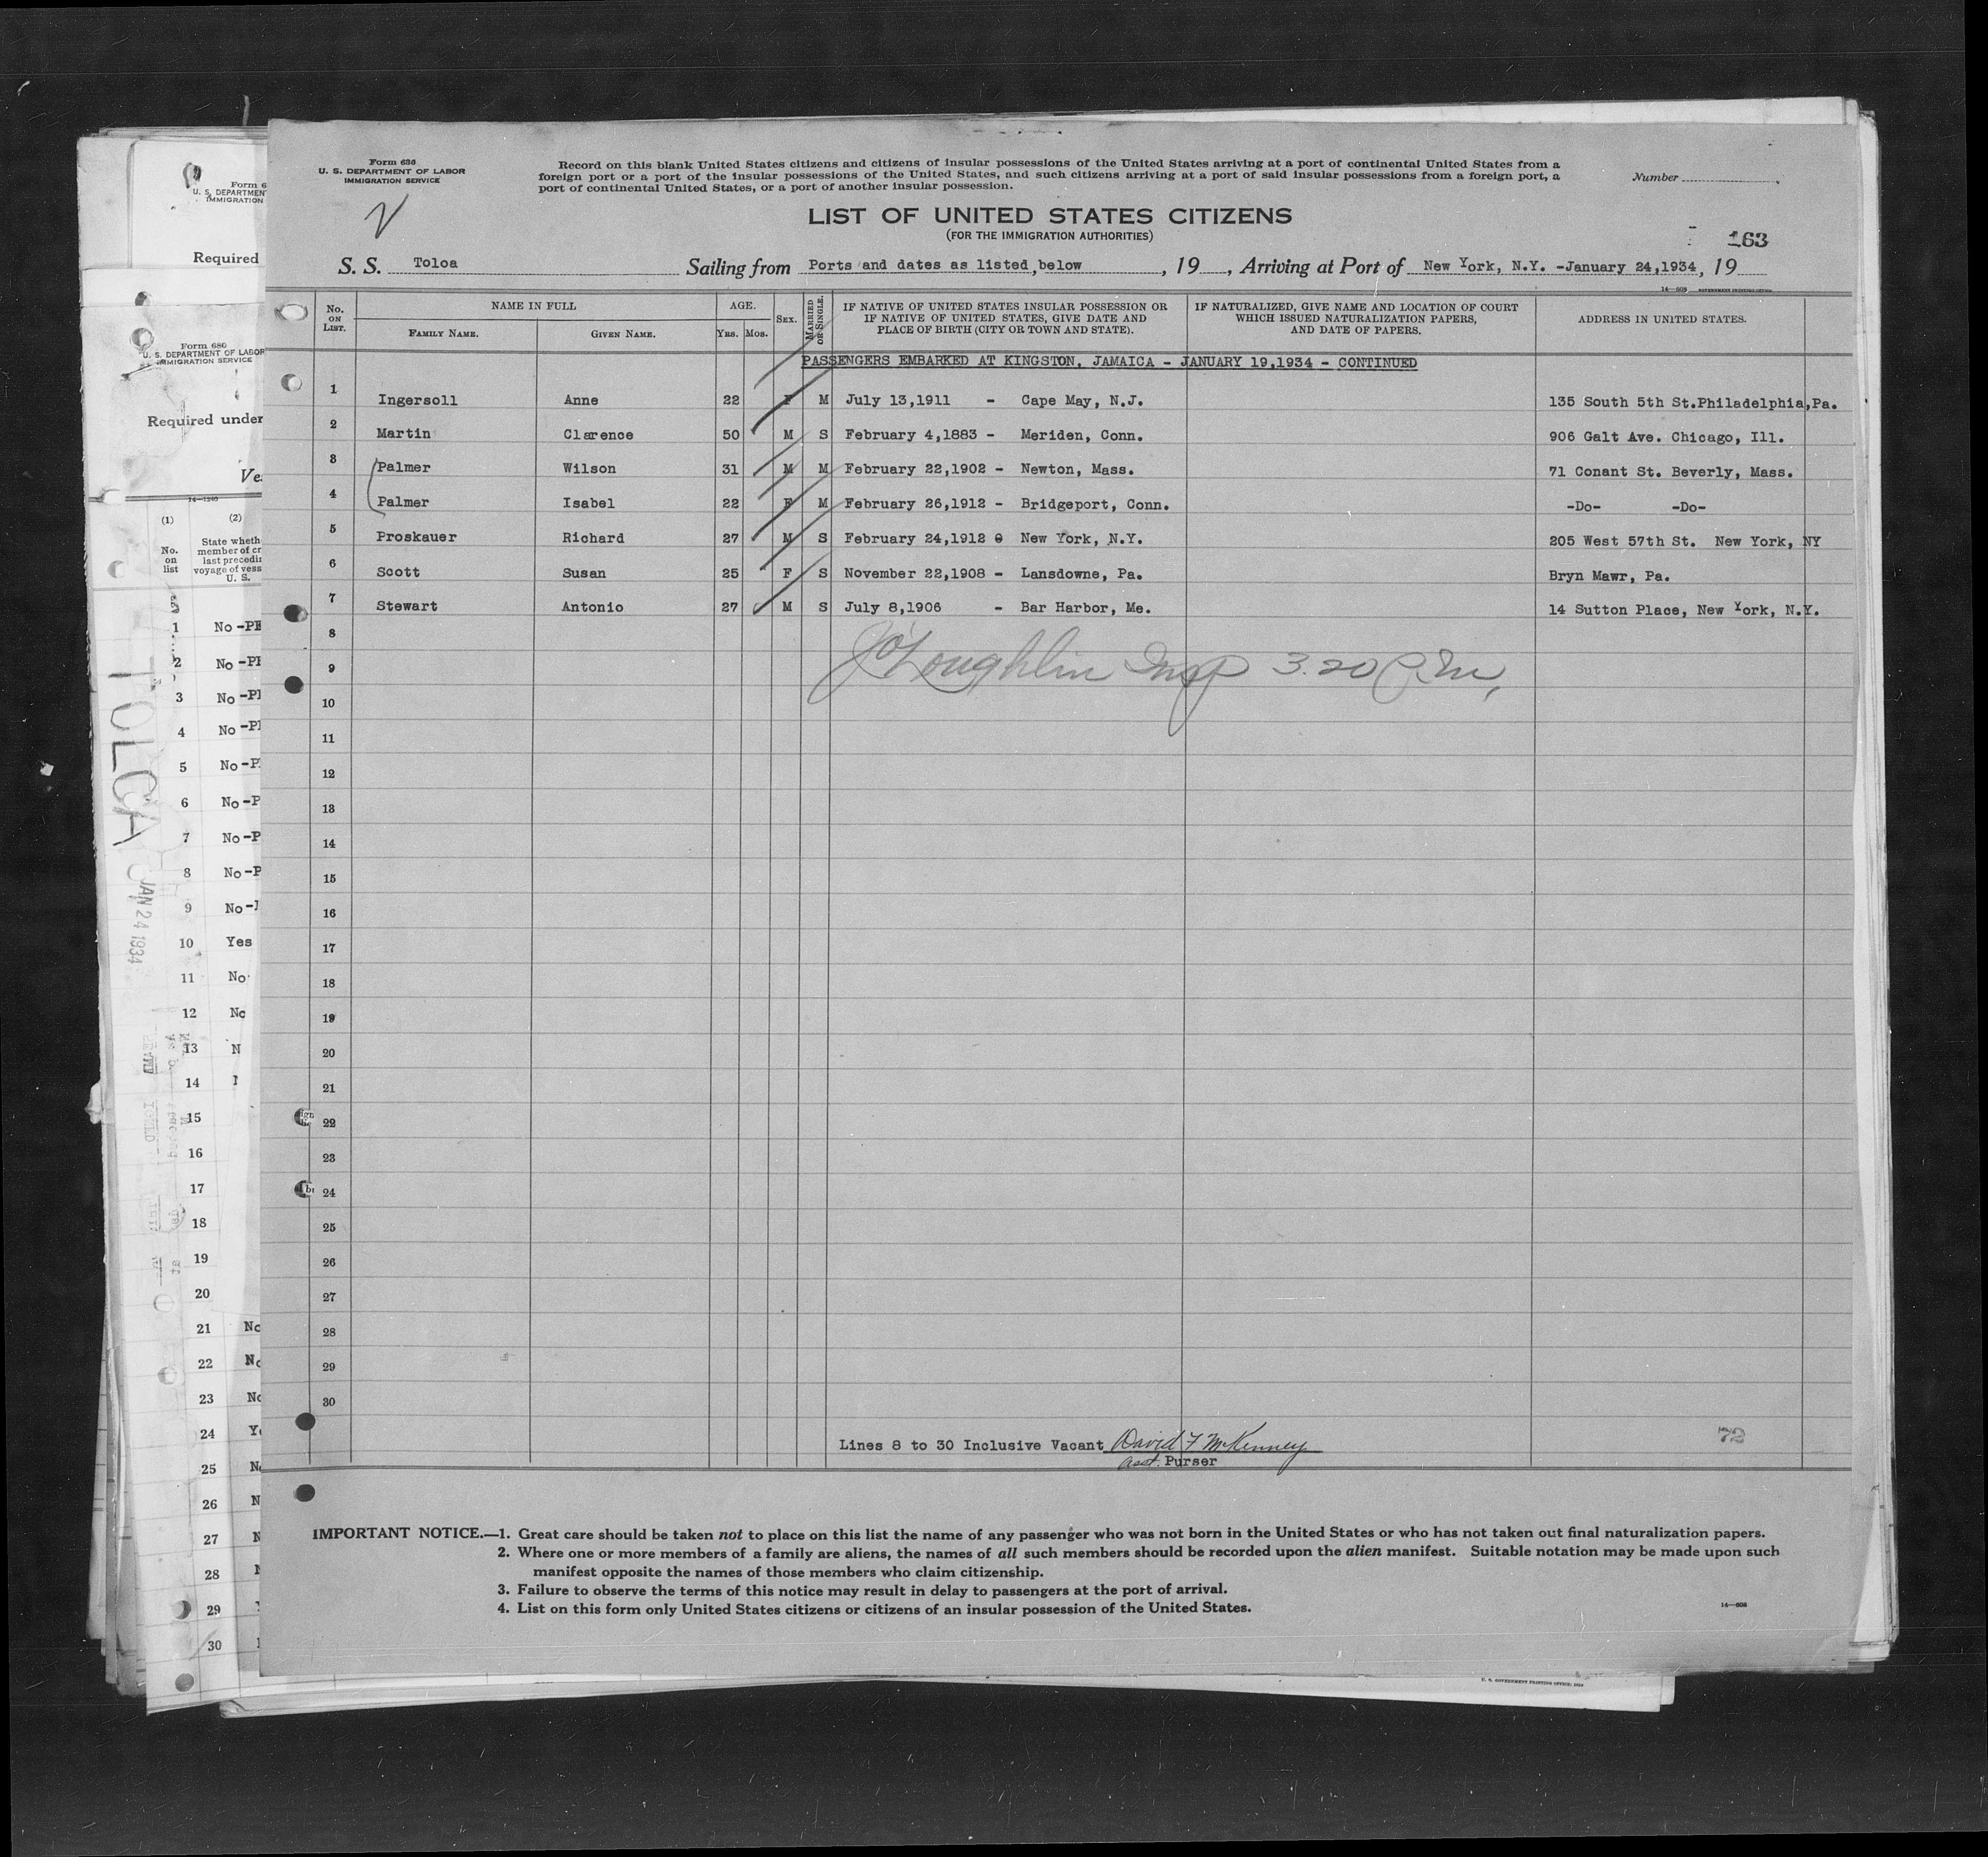 Form 630
U. S. DEPARTMENT OF LABOR
IMMIGRATION SERVICE
Record on this blank United States citizens and citizens of insular possessions of the United States arriving at a port of continental United States from a
foreign port or a port of the insular possessions of the United States, and such citizens arriving at a port of said insular possessions from a foreign port, a
port of continental United States, or a port of another insular possession.
Number
LIST OF UNITED STATES CITIZENS
(FOR THE IMMIGRATION AUTHORITIES)
163
S. S. Toloa Sailing from Ports and dates as listed below, 19 , Arriving at Port of New York, N.Y. -January 24,1934, 19
No. ON LIST. NAME IN FULL AGE. SEX. MARRIED OR SINGLE. IF NATIVE OF UNITED STATES INSULAR POSSESSION OR IF NATIVE OF UNITED STATES, GIVE DATE AND PLACE OF BIRTH (CITY OR TOWN AND STATE). IF NATURALIZED, GIVE NAME AND LOCATION OF COURT WHICH ISSUED NATURALIZATION PAPERS, AND DATE OF PAPERS. ADDRESS IN UNITED STATES.
FAMILY NAME. GIVEN NAME. Yrs. Mos.
PASSENGERS EMBARKED AT KINGSTON, JAMAICA - JANUARY 19,1934 - CONTINUED
1 Ingersoll Anne 22 F M July 13,1911 - Cape May, N.J. 135 South 5th St.Philadelphia,Pa.
2 Martin Clarence 50 M S February 4,1883 - Meriden, Conn. 906 Galt Ave. Chicago, Ill.
3 Palmer Wilson 31 M M February 22,1902 - Newton, Mass. 71 Conant St. Beverly, Mass.
4 Palmer Isabel 22 F M February 26,1912 - Bridgeport, Conn. -Do- -Do-
5 Proskauer Richard 27 M S February 24,1912 New York, N.Y. 205 West 57th St. New York, NY
6 Scott Susan 25 F S November 22,1908 - Lansdowne, Pa. Bryn Mawr, Pa.
7 Stewart Antonio 27 M S July 8,1906 - Bar Harbor, Me. 14 Sutton Place, New York, N.Y.
8
9 O'Loughlin Insp 3.20 P.M.
10
11
12
13
14
15
16
17
18
19
20
21
22
23
24
25
26
27
28
29
30
Lines 8 to 30 Inclusive Vacant David F McKenney
Asst. Purser
72
IMPORTANT NOTICE.—1. Great care should be taken not to place on this list the name of any passenger who was not born in the United States or who has not taken out final naturalization papers.
2. Where one or more members of a family are aliens, the names of all such members should be recorded upon the alien manifest. Suitable notation may be made upon such
manifest opposite the names of those members who claim citizenship.
3. Failure to observe the terms of this notice may result in delay to passengers at the port of arrival.
4. List on this form only United States citizens or citizens of an insular possession of the United States.
14—608
U. S. GOVERNMENT PRINTING OFFICE
Form 6
U. S. DEPARTMENT
IMMIGRATION
Required
Form 680
U. S. DEPARTMENT OF LABOR
IMMIGRATION SERVICE
Required under
Ve
14-1240
(1) (2)
No. on list
State wheth
member of cr
last precedin
voyage of vess
U. S.
1 No -PE
2 No -PI
3 No -PI
4 No -PI
5 No -P
6 No -P
7 No -P
8 No -P
9 No -
10 Yes
11 No
12 No
13 N
14
15
16
17
18
19
20
21 No
22 No
23 No
24 Y
25 N
26 N
27 N
28
29
30
TOLOA
JAN 24 1934